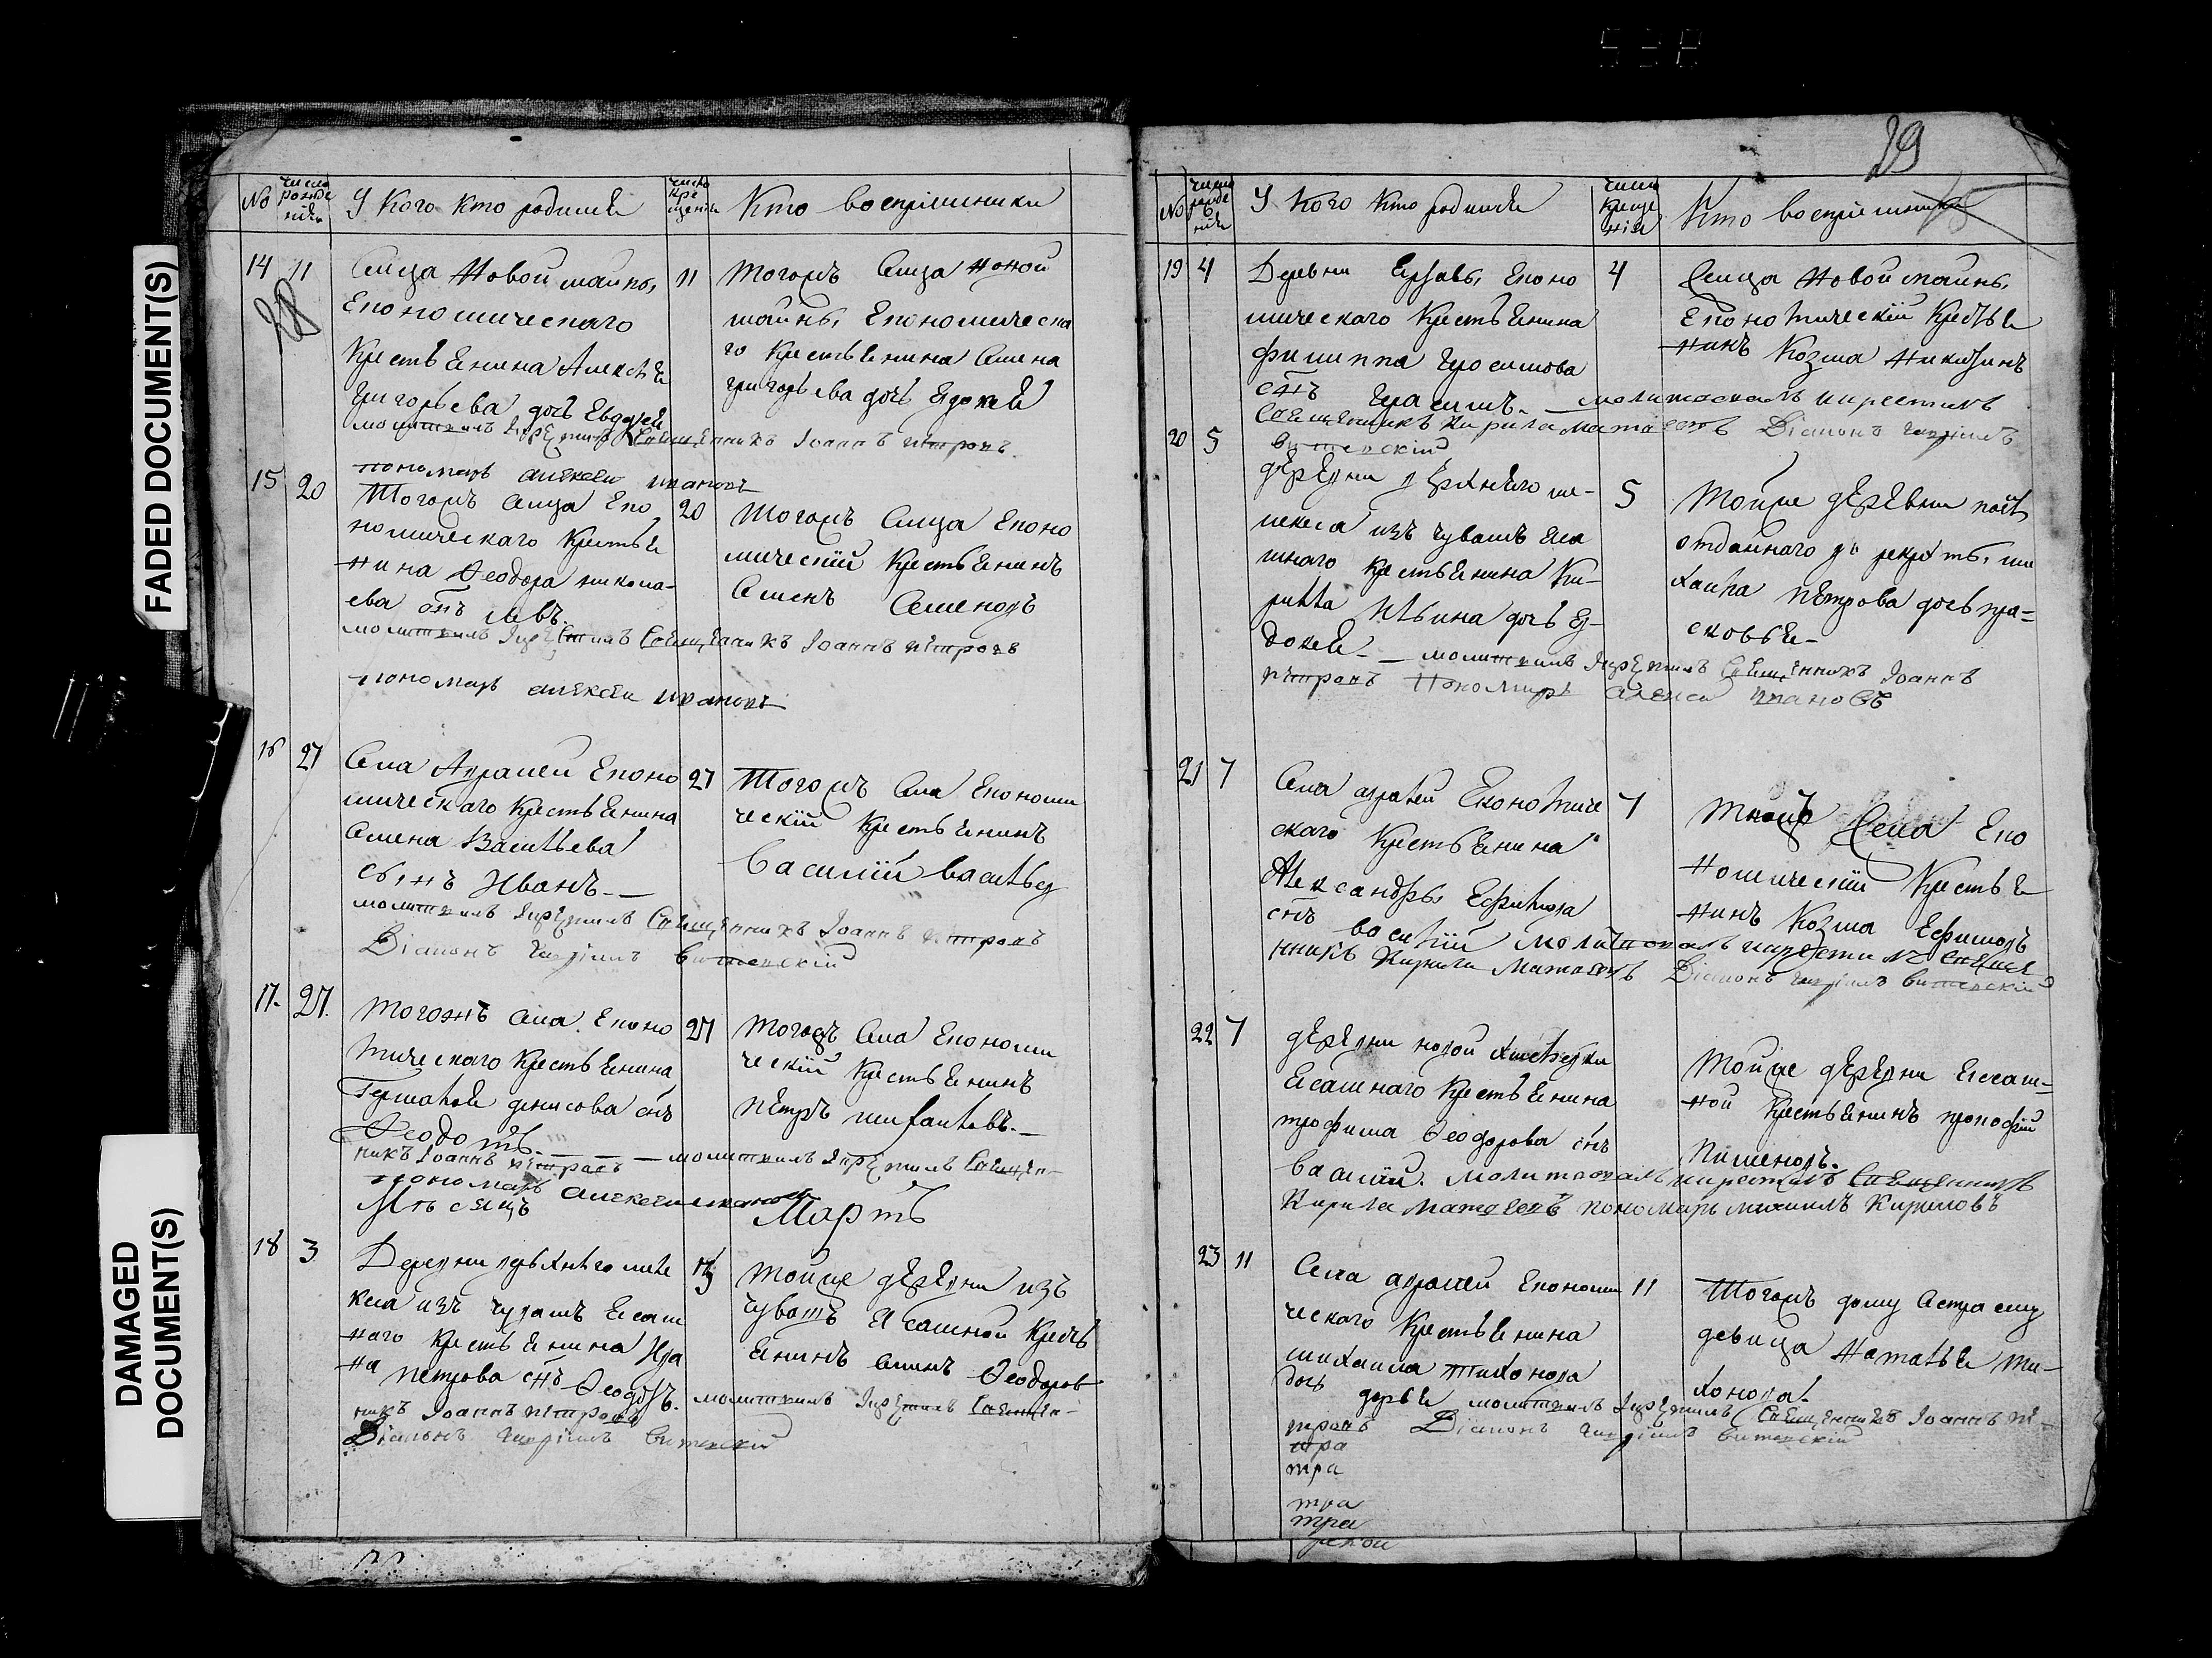 FADED DOCUMENT(S)
DAMAGED
DOCUMENT(S)
№
число
рожде
нія
У Кого Кто родился
число
кре
щенія
Кто воспріемники
14 11
Селца Новой майны
Економическаго
Крестьенина Алексѣя
Григорьева дочь Евдокея
молитвилъ и крестилъ Священникъ Іоаннъ петровъ
пономарь алексеи ивановъ
11
Тогожъ Селца Новой
майны, Економическа
го Крестьенина Семена
григорьева дочь Евдокея
28
15 20
Тогожъ Селца Еко
номическаго Крестье
нина Ѳеодора никола-
ева снъ Левъ.
молитвилъ и крестилъ Священникъ Іоаннъ петровъ
пономарь алексеи ивановъ
20
Тогожъ Селца Еконо
мическій Крестьенинъ
Семенъ Семеновъ
16 27
Села Авралей Еконо
мическаго Крестьенина
Семена Васильева
сынъ Иванъ.
молитвилъ и крестилъ Священникъ Іоаннъ петровъ
Діаконъ гавріилъ витевскій
27
Тогожъ Села Економи
ческій Крестьенинъ
Василій васильев
17. 27.
Тогожъ Села Еконо
мическаго Крестьенина
денисова снъ
Ѳеодотъ. — молитвилъ и крестилъ Священ-
никъ Іоаннъ петровъ
пономарь алексеи ивановъ
27
Тогожъ Села Економи
ческій Крестьенинъ
петръ
Мѣсяцъ Мартъ
18 3
Деревни верхнѣго меле
кеса изъ чувашъ Ясаш
наго Крестьенина Ива
на петрова снъ Ѳеодоръ. молитвилъ и крестилъ Священ-
никъ Іоаннъ петровъ
Діаконъ гавріилъ витевскій
3
Тойже деревни изъ
чувашъ Ясашной Кресть
енинъ Ѳеодоров
29
№
число
рожде
нія
У Кого Кто родился
число
креще
нія
Кто воспріемники
19 4
Деревни Еконо
мическаго Крестьенина
филиппа Герасимова
снъ Герасимъ. — молитвовалъ и крестилъ
Священникъ Кирила матвеевъ Діаконъ гавріилъ
витевскій
4
Селца Новой майны,
Економическій Крестье
нинъ Козма Никитинъ
20 5
деревни верхнѣго ме-
лекеса изъ чувашъ Яса
шнаго Крестьенина Ки-
рилла Ильина дочь Ев-
докея — молитвилъ и крестилъ Священникъ Іоаннъ
петровъ Пономарь алексеи ивановъ
5
Тойже деревни
отданнаго въ рекруты, ми
хаила петрова дочь пра-
сковья —
21 7
Села авралей Економиче
скаго Крестьенина
Александры Ефимова
снъ василій молитвовалъ и крестилъ Священ
никъ Кирила Матвеевъ Діаконъ гавріилъ витевскій
7
Тогожъ Села Еко
номическій Крестье
нинъ Козма Ефимовъ
22 7
деревни новой
Ясашнаго Крестьенина
трофима Ѳеодорова снъ
Василій. молитвовалъ и крестилъ Священникъ
Кирила матвеевъ пономарь михаилъ Кириловъ
Тойже деревни Ясаш-
ной Крестьенинъ прокофій
Пименовъ.
23 11
Села авралей Економи
ческаго Крестьенина
михаила тихонова
дочь дарья молитвилъ и крестилъ Священникъ Іоаннъ пе-
тровъ Діаконъ гавріилъ витевскій
тра
тра
тра
тра
11
Тогожъ дому Сестра ему
девица Наталья ти-
хонова.